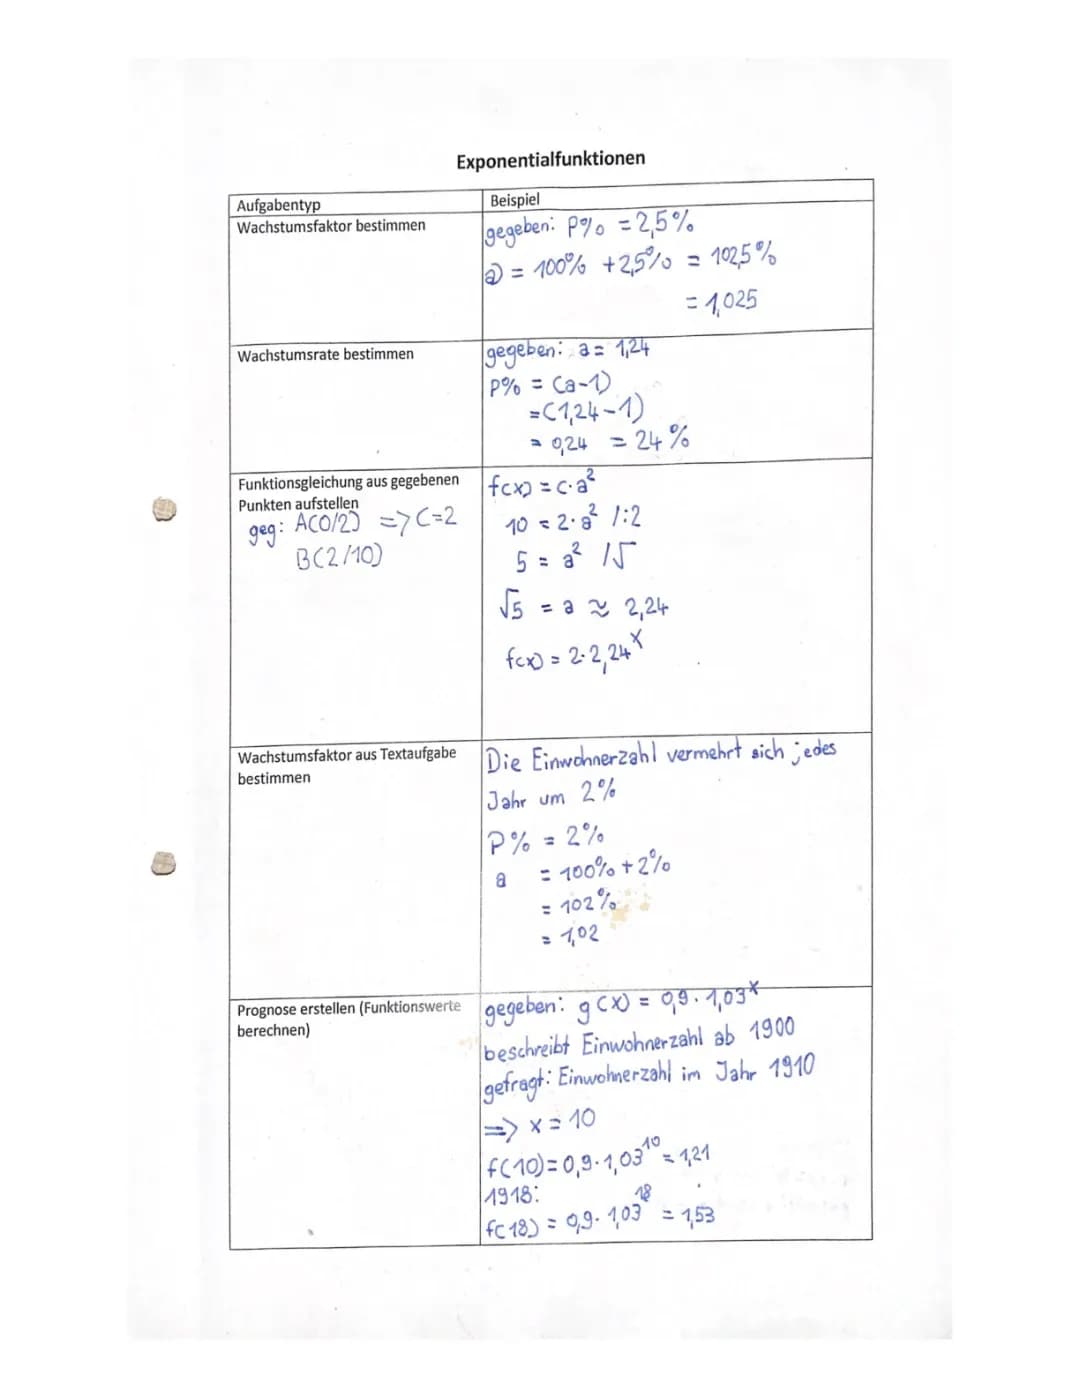 Exponentialfunktionen
Aufgabentyp
Beispiel
Wachstumsfaktor bestimmen
gegeben: p% = 2,5%
a = 100% + 2,5% = 102,5%
= 1,025
Wachstumsrate bestimmen
gegeben: a = 1,24
p% = (a-1)
=(1,24-1)
= 0,24 = 24%
Funktionsgleichung aus gegebenen
Punkten aufstellen
geg: A(0/2) => C=2
B(2/10)
f(x) = c·a²
10 = 2·a² /:2
5 = a² /√
√5 = a ≈ 2,24
f(x) = 2·2,24^x
Wachstumsfaktor aus Textaufgabe
bestimmen
Die Einwohnerzahl vermehrt sich jedes
Jahr um 2%
P% = 2%
a = 100% + 2%
= 102%
= 1,02
Prognose erstellen (Funktionswerte
berechnen)
gegeben: g(x) = 0,9 · 1,03^x
beschreibt Einwohnerzahl ab 1900
gefragt: Einwohnerzahl im Jahr 1910
=> x = 10
f(10) = 0,9 · 1,03^10 = 1,21
1918:
f(18) = 0,9 · 1,03^18 = 1,53